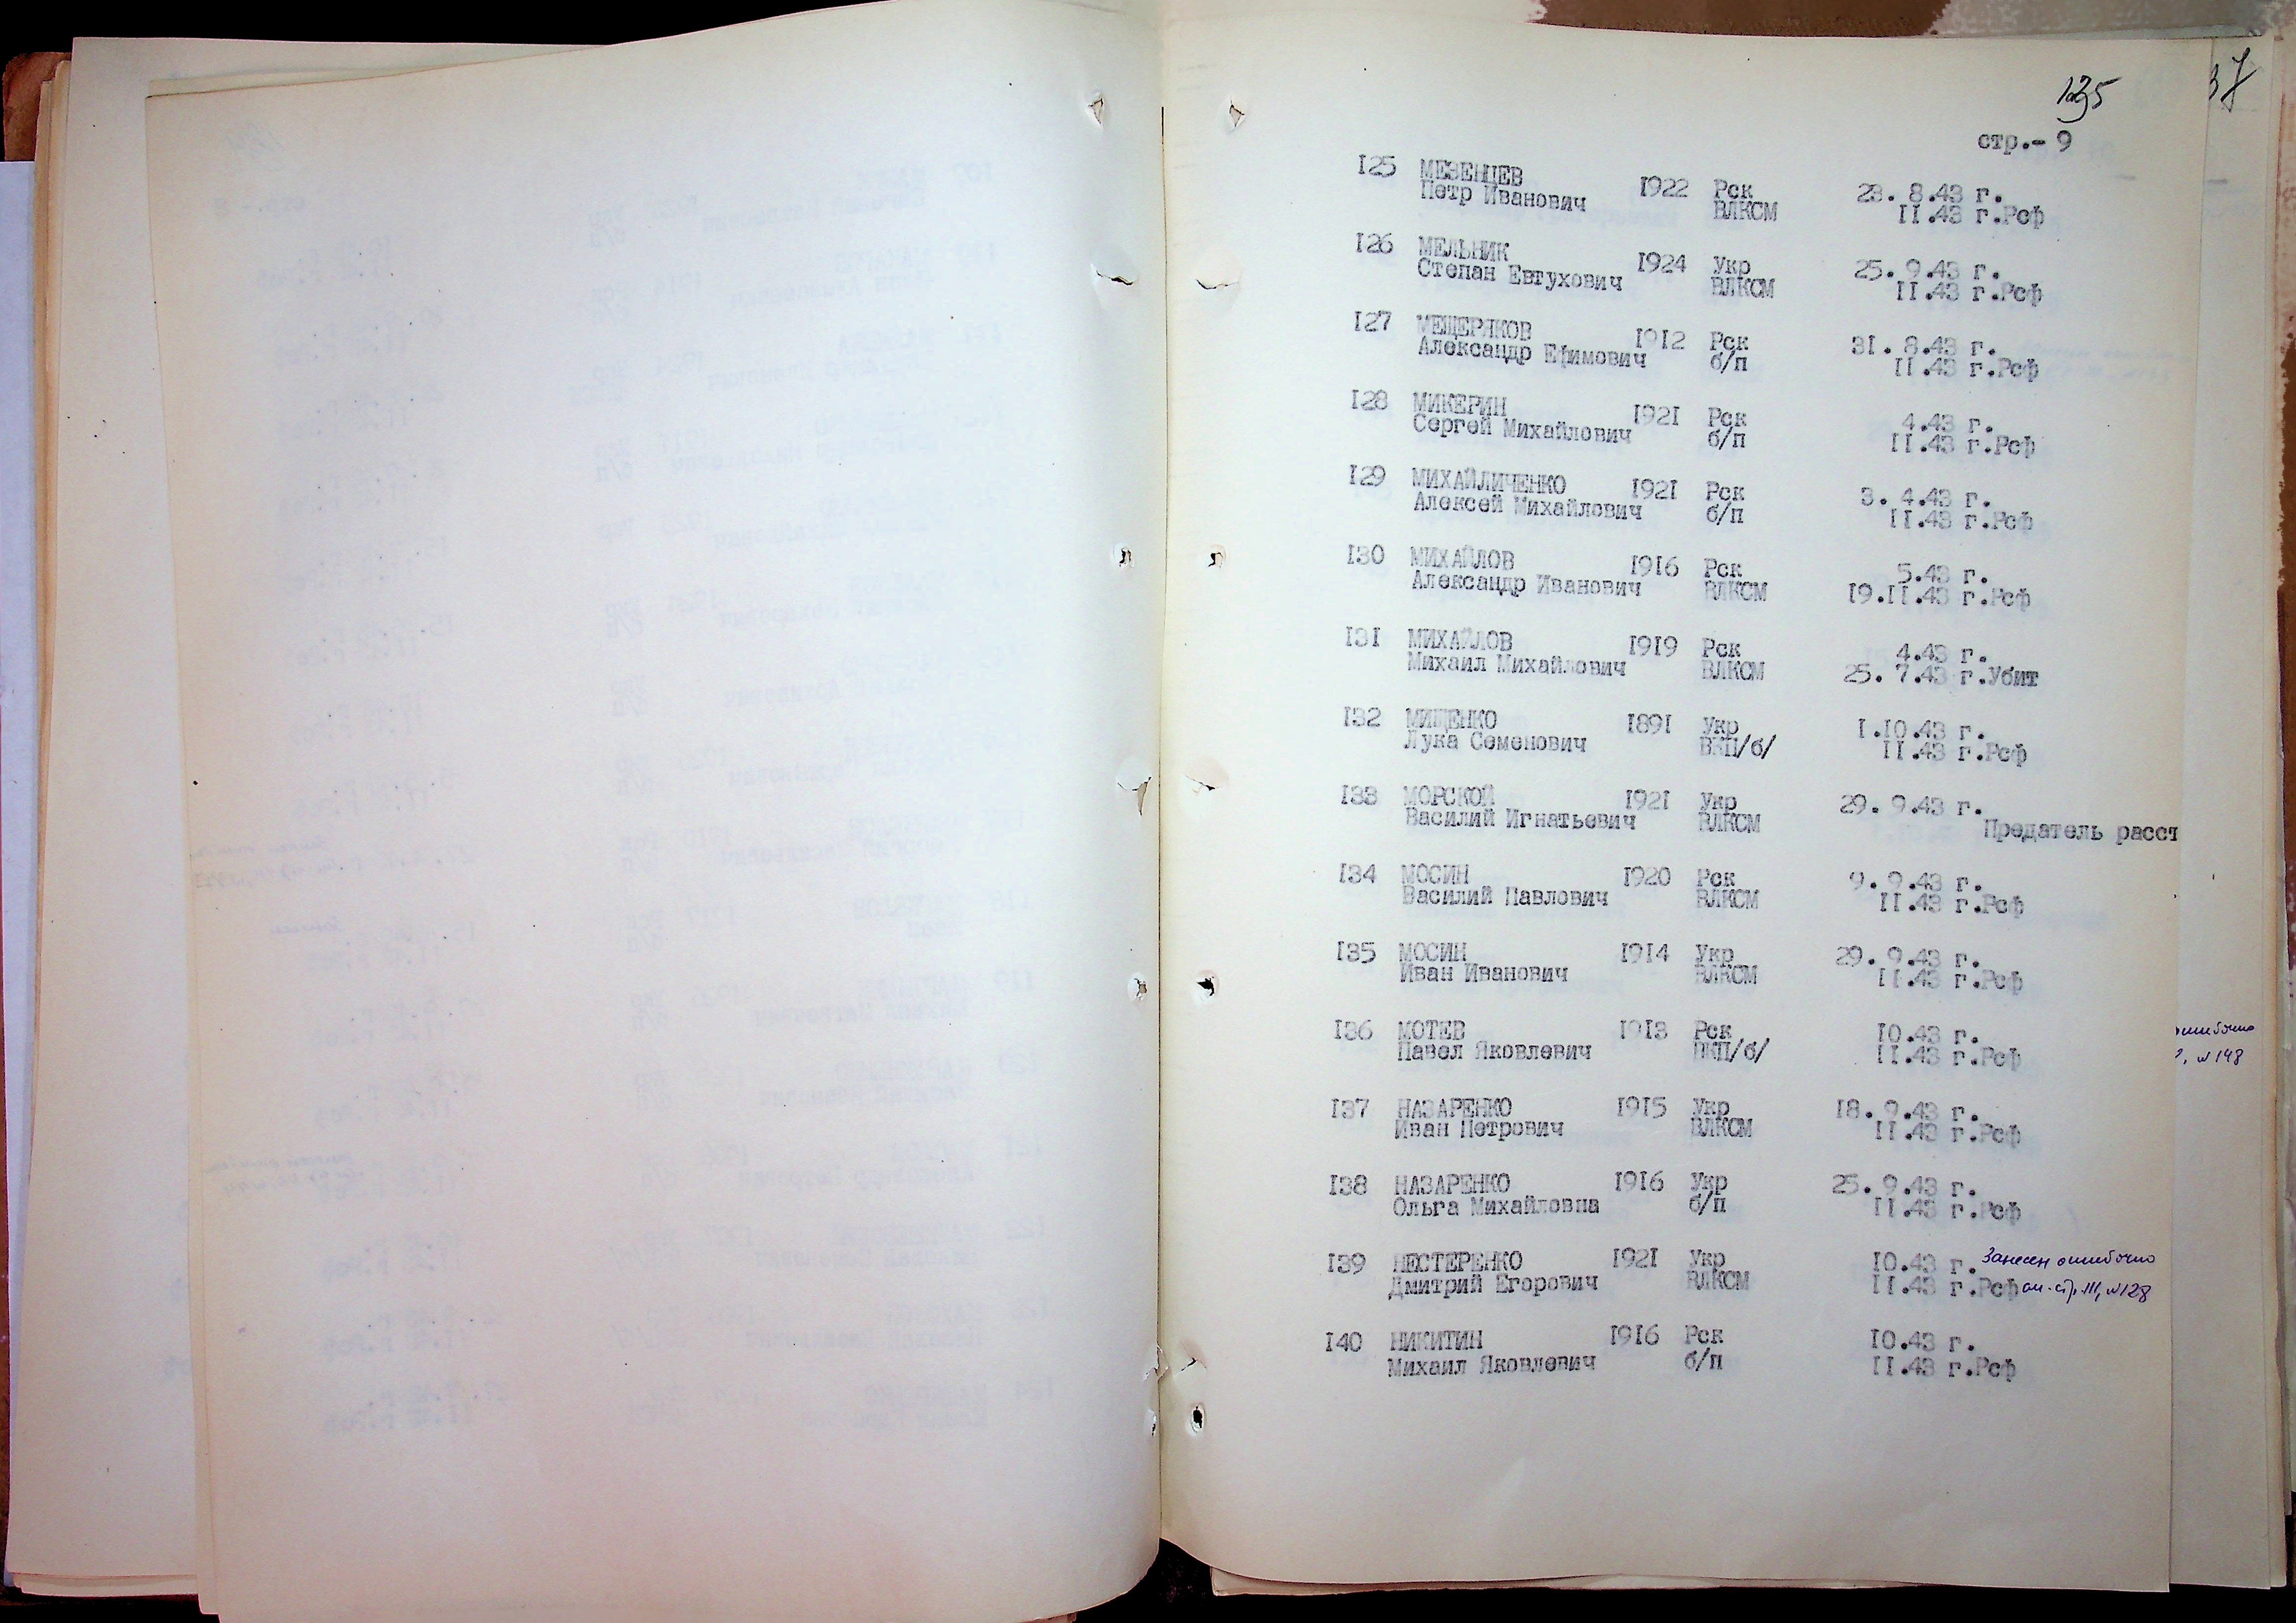 135
37
стр.- 9
125 МЕЗЕНЦЕВ
Петр Иванович 1922 Рск 28. 8.43 г.
ВЛКСМ 11.43 г.Рсф
126 МЕЛЬНИК
Степан Евтухович 1924 Укр 25. 9.43 г.
ВЛКСМ 11.43 г.Рсф
127 МЕЩЕРЯКОВ 1912 Рск 31. 8.43 г.
Александр Ефимович б/п 11.43 г.Рсф
128 МИКЕРИН 1921 Рск 4.43 г.
Сергей Михайлович б/п 11.43 г.Рсф
129 МИХАЙЛИЧЕНКО 1921 Рск 3. 4.43 г.
Алексей Михайлович б/п 11.43 г.Рсф
130 МИХАЙЛОВ 1916 Рск 5.43 г.
Александр Иванович ВЛКСМ 19.11.43 г.Рсф
131 МИХАЙЛОВ 1919 Рск 4.43 г.
Михаил Михайлович ВЛКСМ 25. 7.43 г.Убит
132 МИЩЕНКО 1891 Укр 1.10.43 г.
Лука Семенович ВКП/б/ 11.43 г.Рсф
133 МОРСКОЙ 1921 Укр 29. 9.43 г.
Василий Игнатьевич ВЛКСМ Предатель расст
134 МОСИН 1920 Рск 9. 9.43 г.
Василий Павлович ВЛКСМ 11.43 г.Рсф
135 МОСИН 1914 Укр 29. 9.43 г.
Иван Иванович ВЛКСМ 11.43 г.Рсф
136 МОТЕВ 1913 Рск 10.43 г.
Павел Яковлевич ВКП/б/ 11.43 г.Рсф
ошибочно
, №148
137 НАЗАРЕНКО 1915 Укр 18. 9.43 г.
Иван Петрович ВЛКСМ 11.43 г.Рсф
138 НАЗАРЕНКО 1916 Укр 25. 9.43 г.
Ольга Михайловна б/п 11.43 г.Рсф
139 НЕСТЕРЕНКО 1921 Укр 10.43 г. Занесен ошибочно
Дмитрий Егорович ВЛКСМ 11.43 г.Рсф см. стр. 111, №128
140 НИКИТИН 1916 Рск 10.43 г.
Михаил Яковлевич б/п 11.43 г.Рсф